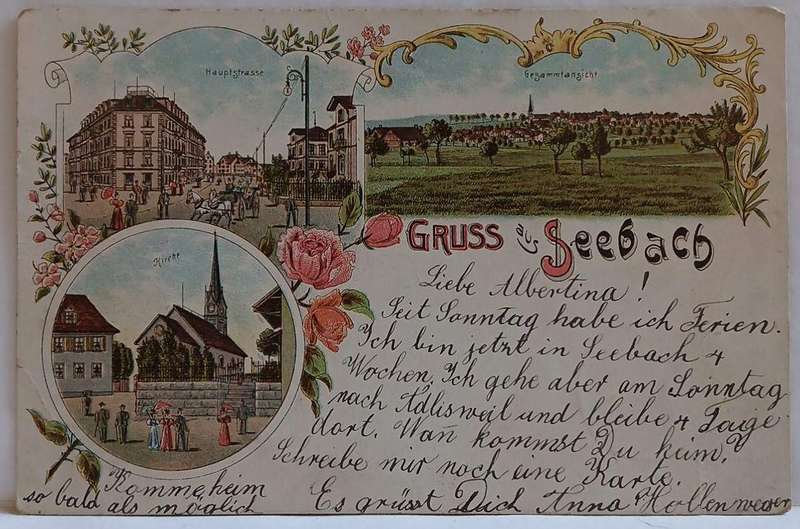 Hauptstrasse
Gesammtansicht
Kirche
GRUSS aus Seebach
Liebe Albertina!
Seit Sonntag habe ich Ferien.
Ich bin jetzt in Seebach 4
Wochen. Ich gehe aber am Sonntag
nach Adlisweil und bleibe 4 Tage
dort. Wañ kommst Du heim?
Schreibe mir noch eine Karte.
Es grüsst Dich Anna Hollenweger
Komme heim
so bald als möglich